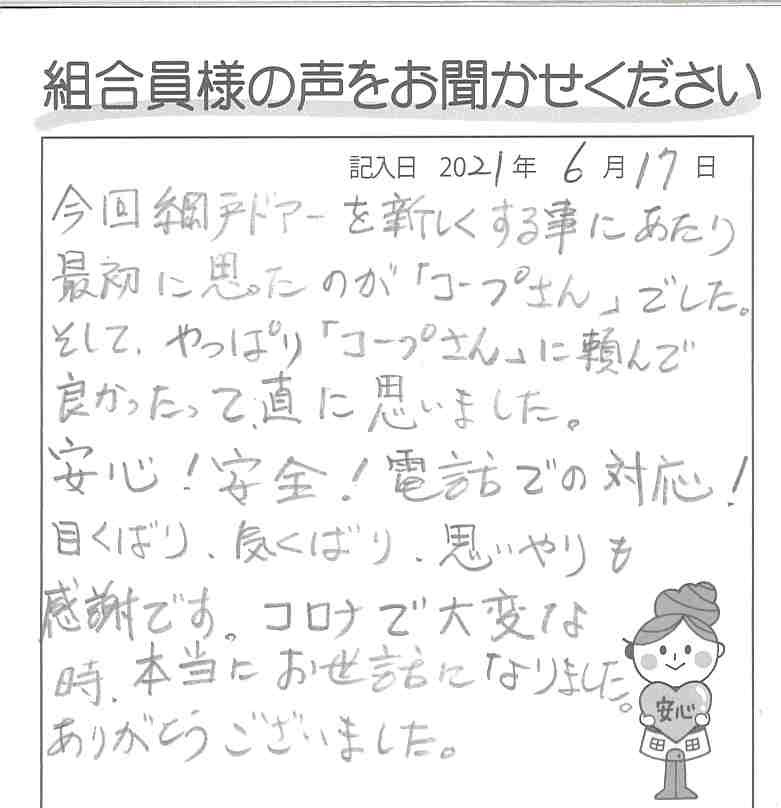 組合員様の声をお聞かせください
記入日 2021年 6月17日
今回網戸ドアーを新しくする事にあたり
最初に思ったのが「コープさん」でした。
そして、やっぱり「コープさん」に頼んで
良かったって、直に思いました。
安心!安全!電話での対応!
目くばり、気くばり、思いやりも
感謝です。コロナで大変な
時、本当にお世話になりました。
ありがとうございました。
安心